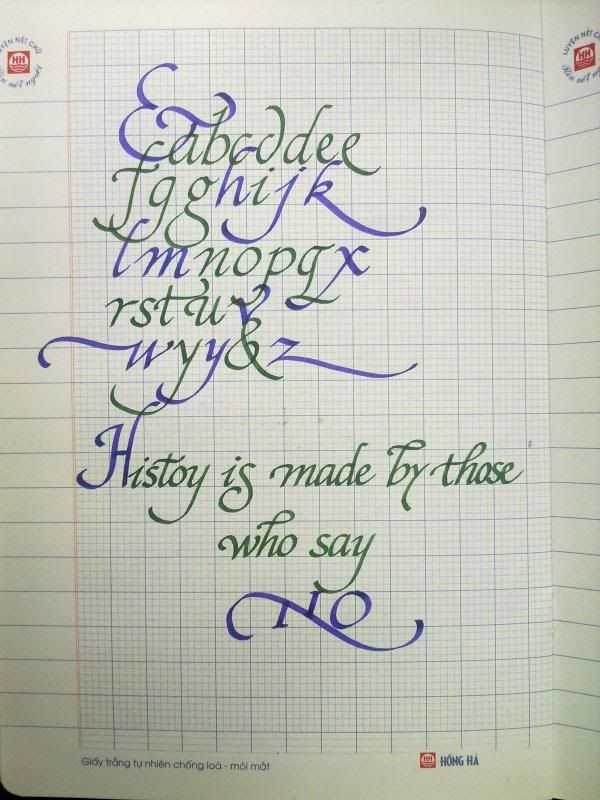 LUYỆN NÉT CHỮ
HH
Rèn nết người
LUYỆN NÉT CHỮ
HH
Eabcddee
fgghijk
lmnopqx
rstuv
wyy&z
Histoy is made by those
who say
NO
Giấy trắng tự nhiên chống loá - mỏi mắt
HH HỒNG HÀ